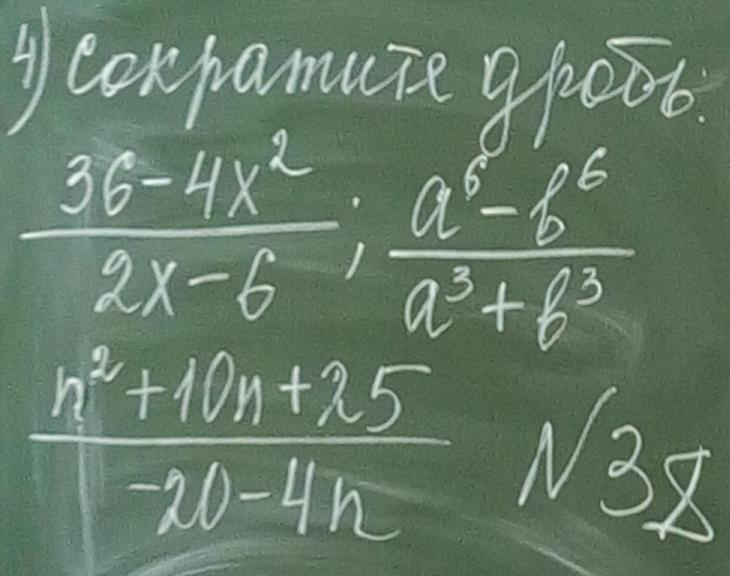 4) Сократите дробь:
36-4x²/2x-6 ; a⁶-b⁶/a³+b³
n²+10n+25/-20-4n N38